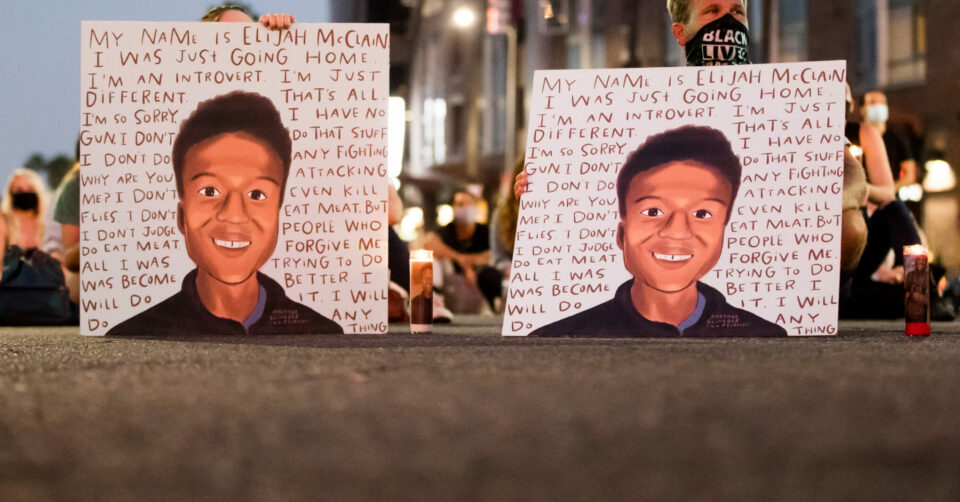 MY NAME IS ELIJAH McCLAIN
I WAS JUST GOING HOME.
I'M AN INTROVERT. I'M JUST
DIFFERENT. THAT'S ALL.
I'M SO SORRY. I HAVE NO
GUN. I DON'T DO THAT STUFF
I DON'T DO ANY FIGHTING
WHY ARE YOU ATTACKING
ME? I DON'T EVEN KILL
FLIES. I DON'T EAT MEAT. BUT
I DON'T JUDGE PEOPLE WHO
DO EAT MEAT FORGIVE ME.
ALL I WAS TRYING TO DO
WAS BECOME BETTER I
WILL DO IT. I WILL
DO ANY
THING
BLACK
LIVES
MY NAME IS ELIJAH McCLAIN
I WAS JUST GOING HOME.
I'M AN INTROVERT. I'M JUST
DIFFERENT. THAT'S ALL.
I'M SO SORRY. I HAVE NO
GUN. I DON'T DO THAT STUFF
I DON'T DO ANY FIGHTING
WHY ARE YOU ATTACKING
ME? I DON'T EVEN KILL
FLIES. I DON'T EAT MEAT. BUT
I DON'T JUDGE PEOPLE WHO
DO EAT MEAT FORGIVE ME.
ALL I WAS TRYING TO DO
WAS BECOME BETTER I
WILL DO IT. I WILL
DO ANY
THING